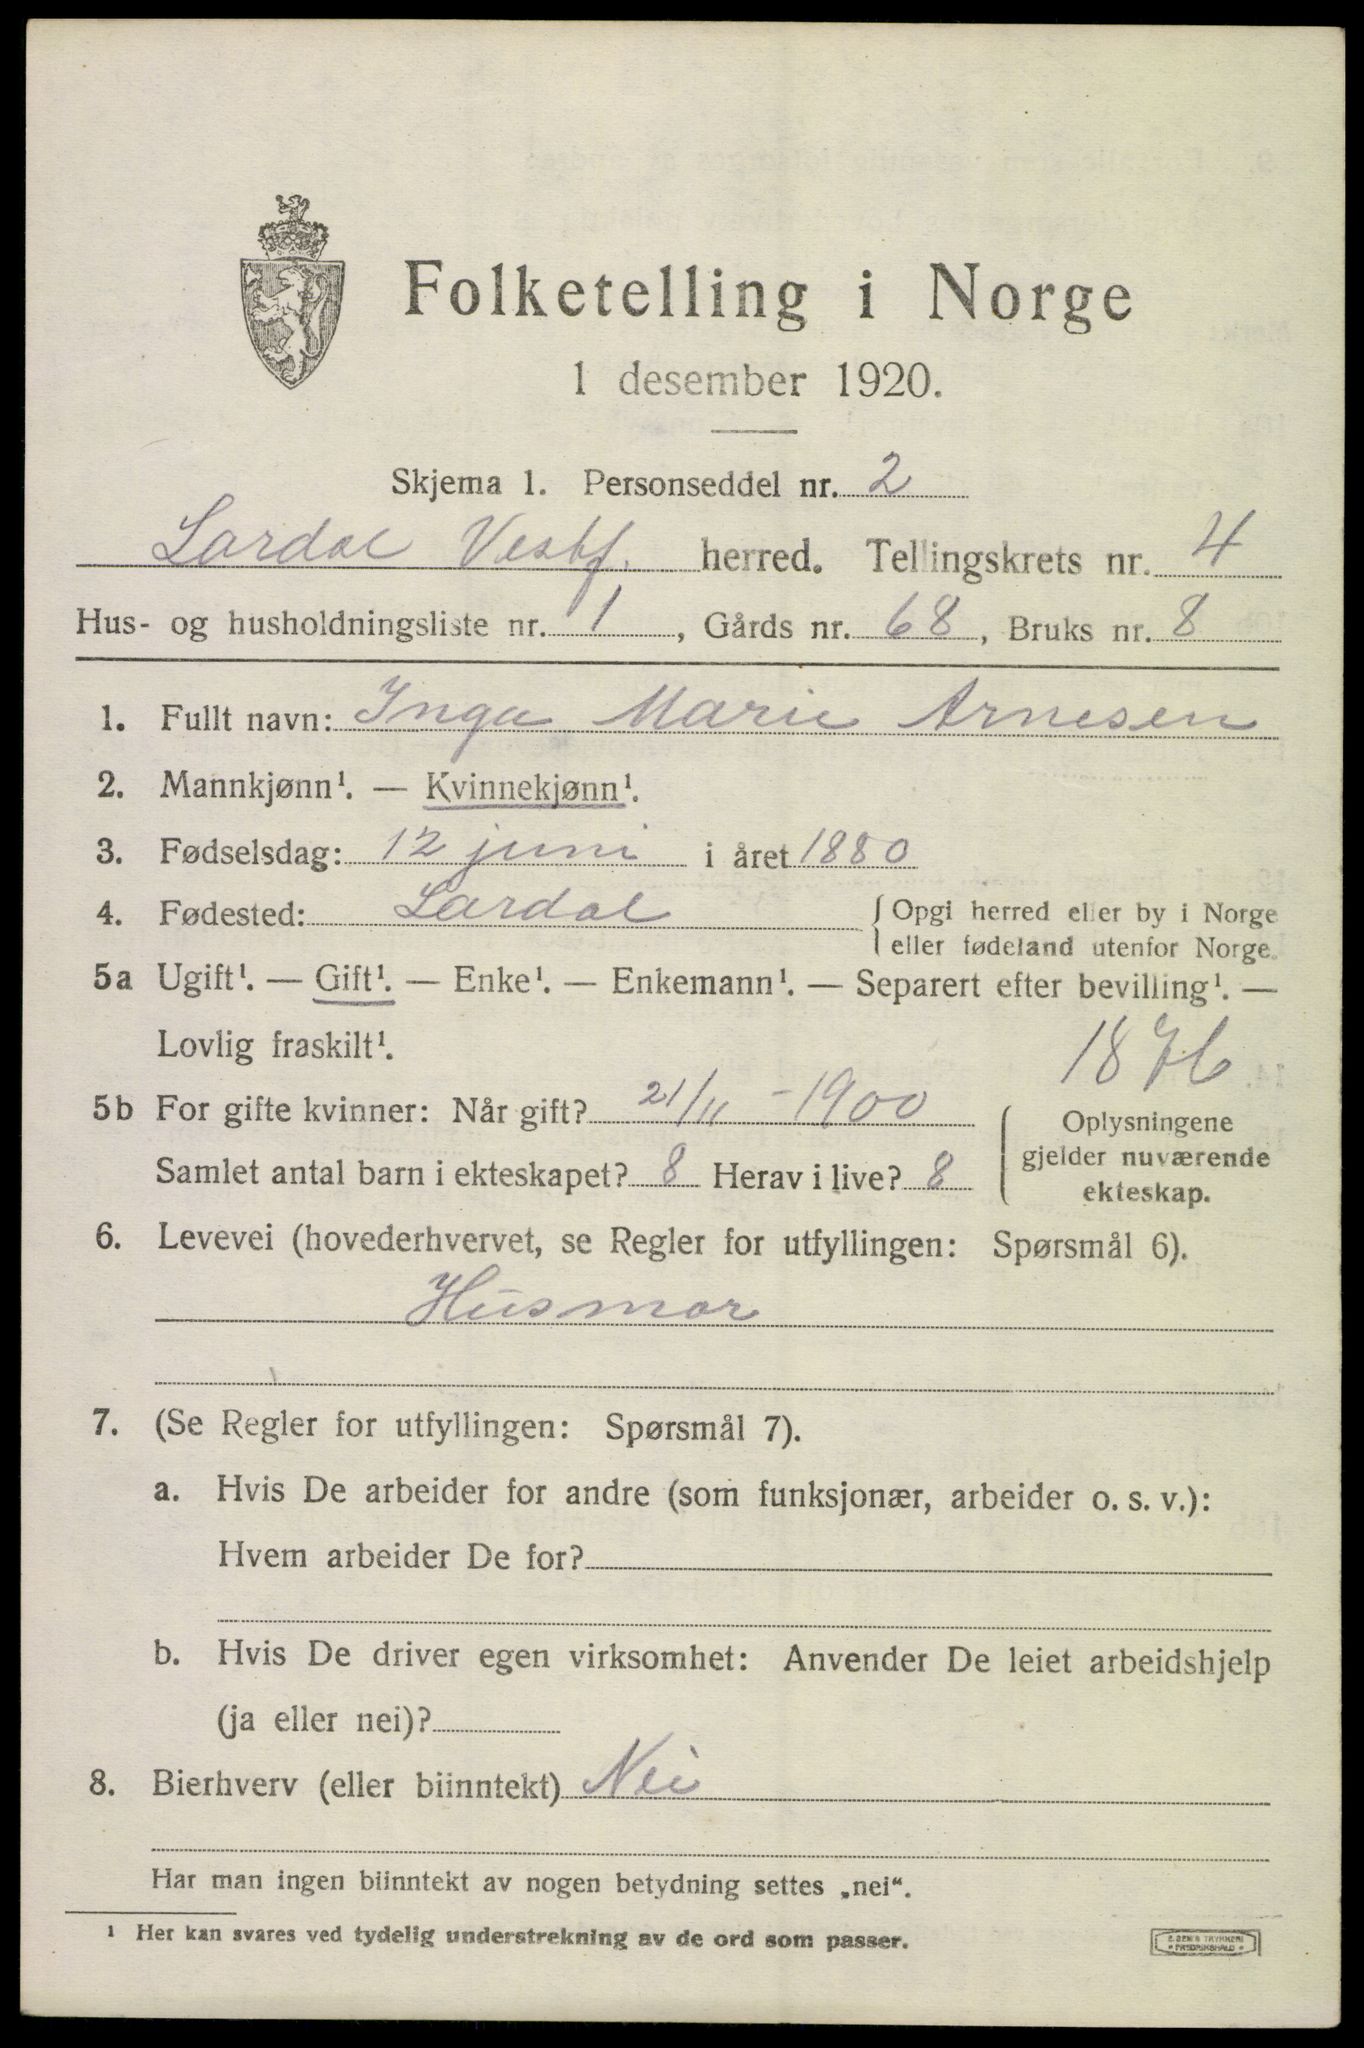 Folketelling i Norge
1 desember 1920.
Skjema 1. Personseddel nr. 2
Lardal Vestf. herred. Tellingskrets nr. 4
Hus- og husholdningsliste nr. 1, Gårds nr. 68, Bruks nr. 8
1. Fullt navn: Inga Marie Arnesen
2. Mannkjønn¹. — Kvinnekjønn¹.
3. Fødselsdag: 12 juni i året 1880
4. Fødested: Lardal { Opgi herred eller by i Norge
eller fødeland utenfor Norge.
5a Ugift¹. — Gift¹. — Enke¹. — Enkemann¹. — Separert efter bevilling¹. —
Lovlig fraskilt¹.
1876
5b For gifte kvinner: Når gift? 21/11 - 1900
Samlet antal barn i ekteskapet? 8 Herav i live? 8
Oplysningene
gjelder nuværende
ekteskap.
6. Levevei (hovederhvervet, se Regler for utfyllingen: Spørsmål 6).
Husmor
7. (Se Regler for utfyllingen: Spørsmål 7).
a. Hvis De arbeider for andre (som funksjonær, arbeider o. s. v.):
Hvem arbeider De for?
b. Hvis De driver egen virksomhet: Anvender De leiet arbeidshjelp
(ja eller nei)?
8. Bierhverv (eller biinntekt) Nei
Har man ingen biinntekt av nogen betydning settes „nei“.
¹ Her kan svares ved tydelig understrekning av de ord som passer.